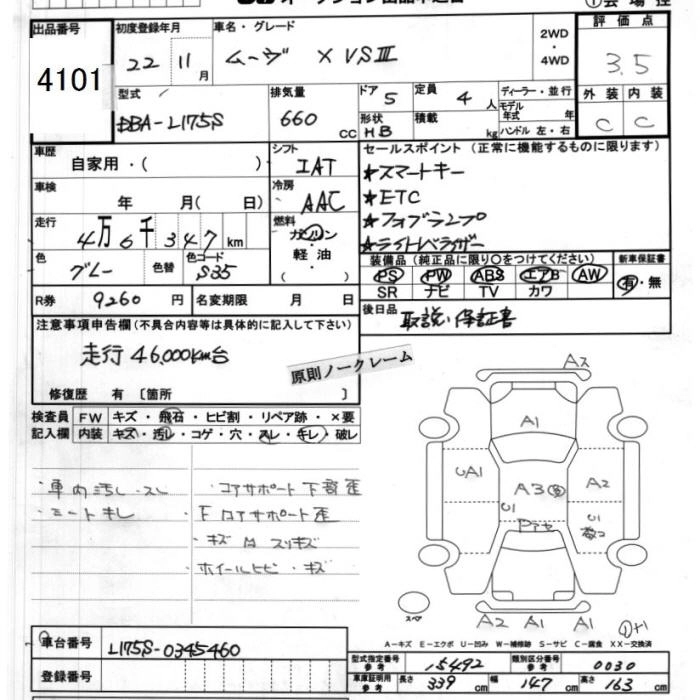 出品番号 4101
初度登録年月 22 11月
車名・グレード ムーヴ X VSIII
2WD・4WD
評価点 3.5
型式 DBA-L175S
排気量 660 CC
ドア 5
定員 4人
形状 HB
積載 kg
ディーラー・並行
モデル年式 年
ハンドル 左・右
外装 内装
C C
車歴 自家用・( )
シフト IAT
セールスポイント (正常に機能するものに限ります)
★スマートキー
★ETC
★フォグランプ
★ライトレベライザー
車検 年 月( 日)
冷房 AAC
走行 4万6千347km
燃料 ガソリン・軽油・( )
色 グレー 色替 色コード S35
装備品 (純正品に限り○をつけてください) 新車保証書
PS PW ABS エアB AW 有・無
SR ナビ TV カワ
R券 9260円 名変期限 月 日
後日品 取説、保証書
注意事項申告欄 (不具合内容等は具体的に記入して下さい)
走行 46,000km台
原則ノークレーム
修復歴 有〔箇所 〕
検査員記入欄 FW キズ・飛石・ヒビ割・リペア跡・×要
内装 キズ・汚レ・コゲ・穴・スレ・キレ・破レ
・車内汚レ・スレ
・シートキレ
・コアサポート下部歪
・F ロアサポート歪
・キズ スリキズ
・ホイールヒビ・キズ
A1
UA1 A3 A2
U1 U1
スペア
A2 A1 A1
A-キズ E-エクボ U-凹み W-補修跡 S-サビ C-腐食 XX-交換済
車台番号 L175S-0345460
登録番号
型式指定番号 参考 15492 類別区分番号 参考 0030
車庫証明用 参考 長さ 339cm 幅 147cm 高さ 163cm